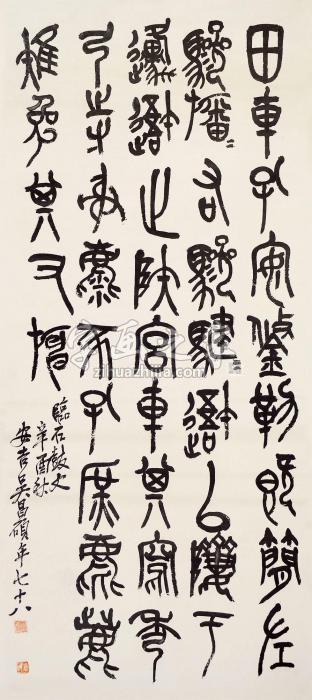 田車孔安鋚勒既簡左
驂旛〻右驂騝〻避以隮于
邍避止陕宫車其寫秀
弓寺射麋豕孔庶麀鹿
雉兔其又旃
臨石鼓文
辛酉秋
安吉吴昌碩年七十八
zihuazhijia.com